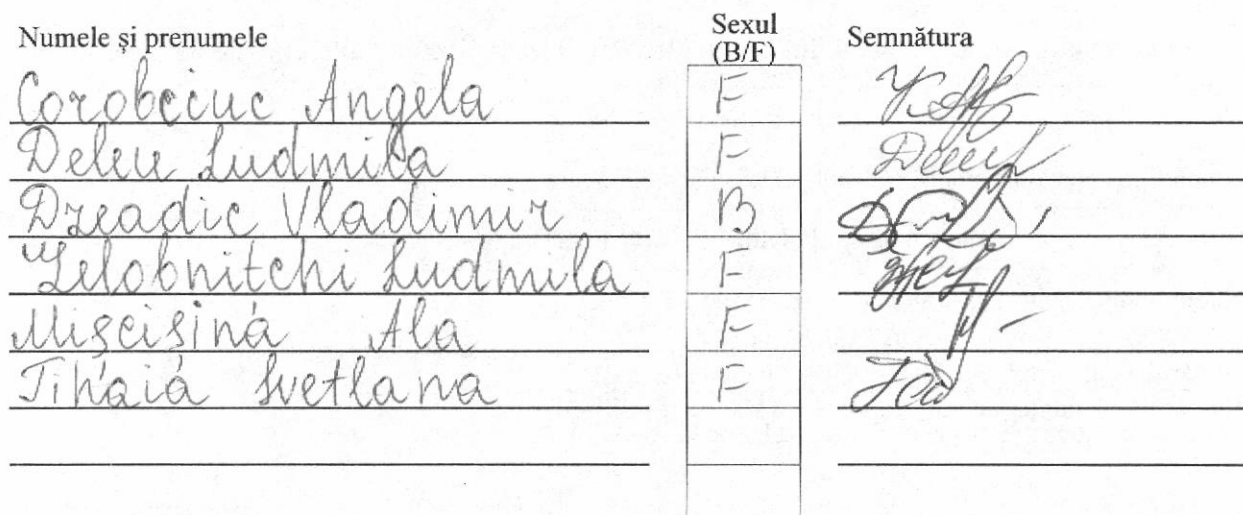 Numele și prenumele Sexul (B/F) Semnătura
Corobceiuc Angela F
Deleu Ludmila F
Dreadic Vladimir B
Jelobnitchi Ludmila F
Mișcișina Ala F
Tihaia Svetlana F